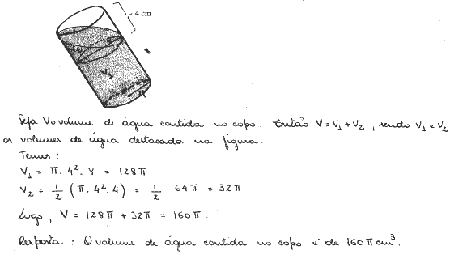 4 cm
V₂
V₁
Seja V o volume de água contida no copo. Então V = V₁ + V₂, sendo V₁ e V₂
os volumes de água destacada na figura.
Temos:
V₁ = π. 4². 8 = 128π
V₂ = 1/2 (π. 4². 4) = 1/2 64π = 32π
Logo, V = 128π + 32π = 160π.
Resposta.: O volume de água contida no copo é de 160π cm³.